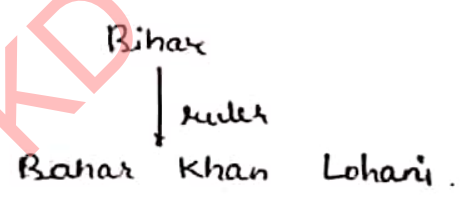 Bihar
ruler
Bahar Khan Lohani.
KD